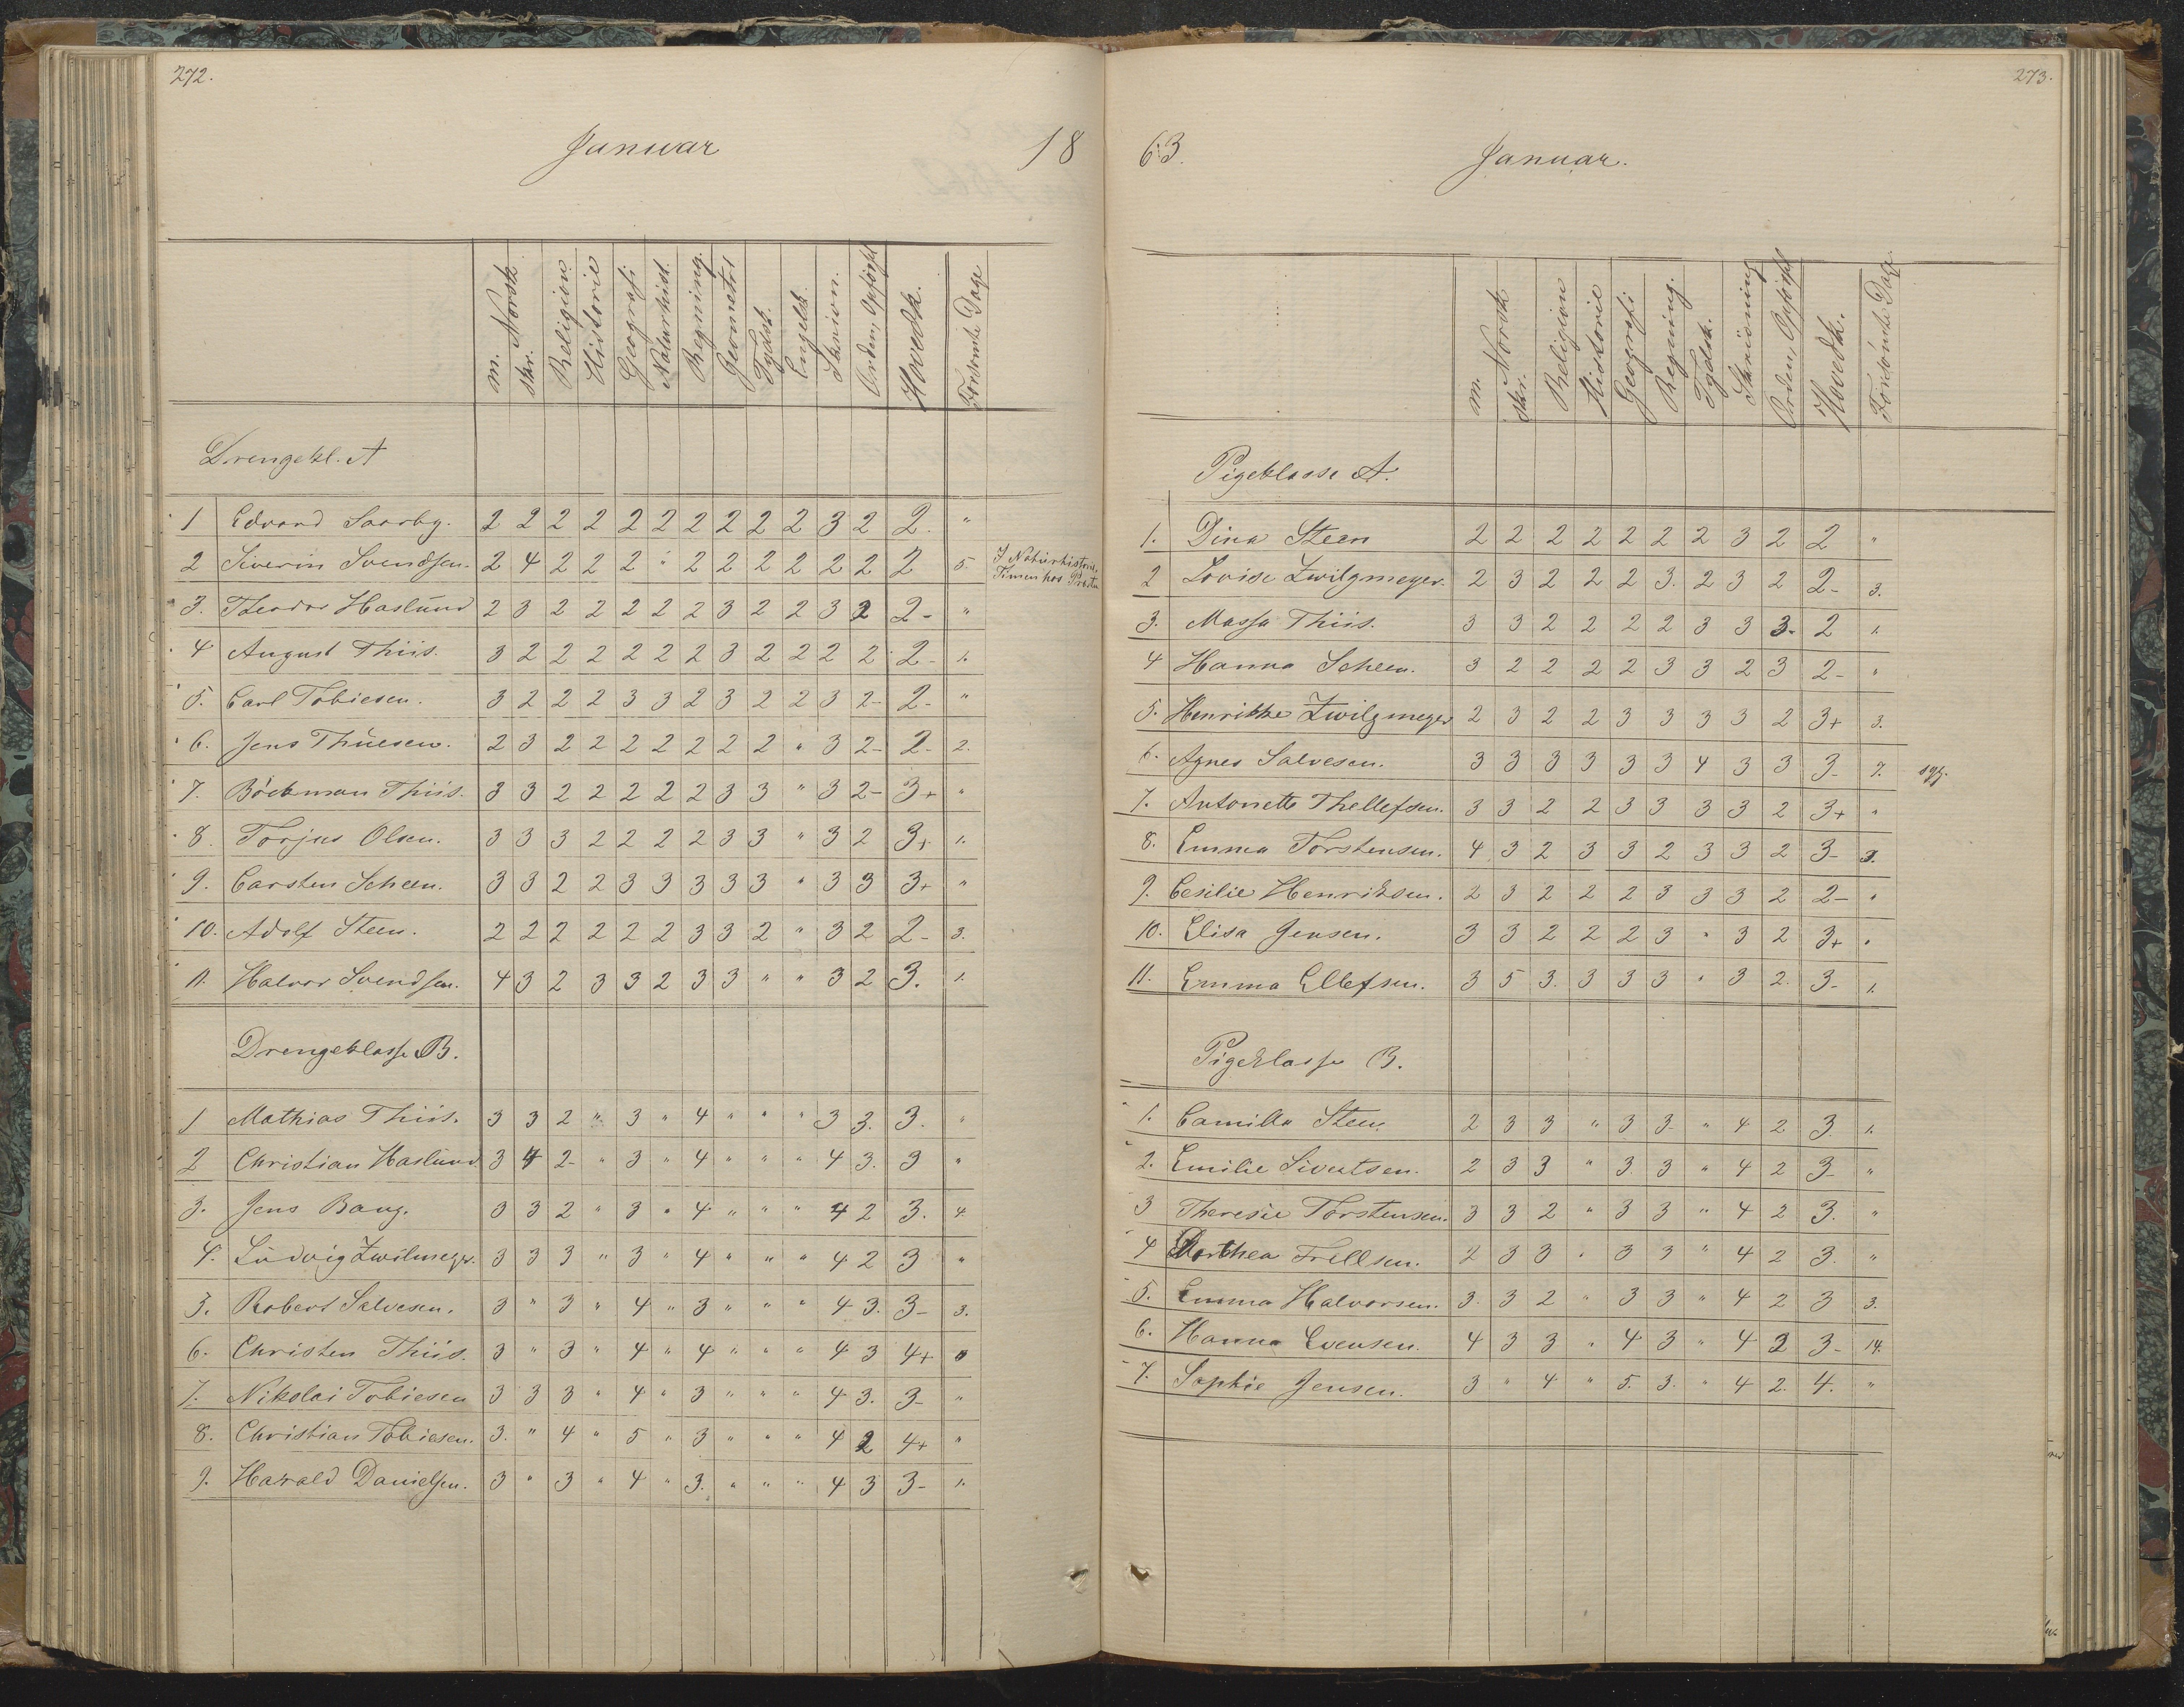 272.
Januar 18
m. Norsk skr. Religion Historie Geografi Naturhist. Regning. Geometri Tydsk. Engelsk. Skrivn. Orden, Opførsl Hovedk. Forsømte Dage
Drengekl. A
1 Edvard Saarby. 2 2 2 2 2 2 2 2 2 2 3 2 2. "
2 Siverin Svendsen. 2 4 2 2 2 " 2 2 2 2 2 2 2 5. I Naturhistorie
Timen hos Præsten
3. Theodor Haslund 2 3 2 2 2 2 2 3 2 2 3 2 2- "
4 August Thiis. 3 2 2 2 2 2 2 3 2 2 2 2 2- 1.
5. Carl Tobiesen. 3 2 2 2 3 3 2 3 2 2 3 2- 2- "
6. Jens Thuesen. 2 3 2 2 2 2 2 2 2 " 3 2- 2- 2.
7. Böckman Thiis. 3 3 2 2 2 2 2 3 3 " 3 2- 3+ "
8. Torjus Olsen. 3 3 3 2 2 2 2 3 3 " 3 2 3+ 1.
9. Carsten Scheen. 3 3 2 2 3 3 3 3 3 " 3 3 3+ "
10. Adolf Steen. 2 2 2 2 2 2 3 3 2 " 3 2 2- 3.
11. Halvor Svendsen. 4 3 2 3 3 2 3 3 " " 3 2 3. 1.
Drengeklasse B.
1 Mathias Thiis. 3 3 2 " 3 " 4 " " " 3 3. 3. "
2 Christian Haslund 3 4 2- " 3 " 4 " " " 4 3. 3 "
3. Jens Bang. 3 3 2 " 3 " 4 " " " 4 2 3. 4.
4. Ludvig Zwilmeyer. 3 3 3 " 3 " 4 " " " 4 2 3 "
5. Robert Salvesen. 3 " 3 " 4 " 3 " " " 4 3. 3- 3.
6. Christen Thiis. 3 " 3 " 4 " 4 " " " 4 3 4+ "
7. Nikolai Tobiesen 3 3 3 " 4 " 3 " " " 4 3. 3- "
8. Christian Tobiesen. 3. " 4 " 5 " 3 " " " 4 2 4+ "
9. Harald Danielsen. 3 " 3 " 4 " 3. " " " 4 3 3- 1.
273.
63. Januar.
m. Norsk skr. Religion Historie Geografi Regning. Tydsk. Skrivning Orden, Opførsl Hovedk. Forsømte Dage.
Pigeklasse A.
1. Dina Steen 2 2 2 2 2 2 2 3 2 2 "
2 Lovise Zwilgmeyer. 2 3 2 2 2 3. 2 3 2 2- 3.
3. Massa Thiis. 3 3 2 2 2 2 3 3 3- 2 1.
4 Hanna Scheen. 3 2 2 2 2 3 3 2 3 2- "
5. Henrikke Zwilgmeyer 2 3 2 2 3 3 3 3 2 3+ 3.
6. Agnes Salvesen. 3 3 3 3 3 3 4 3 3 3- 7. syg.
7. Antonette Thellefsen. 3 3 2 2 3 3 3 3 2 3+ "
8. Emma Torstensen. 4 3 2 3 3 2 3 3 2 3- 3.
9. Cesilie Henriksen. 2 3 2 2 2 3 3 3 2 2- "
10. Elisa Jensen. 3 3 2 2 2 3 " 3 2 3+ "
11. Emma Ellefsen. 3 5 3. 3 3 3 " 3 2. 3- 1.
Pigeklasse B.
1. Camilla Steen. 2 3 3 " 3 3- " 4 2 3. 1.
2. Emilie Sivertsen. 2 3 3 " 3. 3 " 4 2 3- "
3 Theresie Torstensen. 3 3 2 " 3 3 " 4 2 3. "
4 Dorthea Frellsen. 2 3 3 " 3 3 " 4 2 3. "
5. Emma Halvorsen. 3. 3 2 " 3 3 " 4 2 3 3.
6. Hanna Evensen. 4 3 3 " 4 3 " 4 3 3- 14.
7. Sophie Jensen. 3 " 4 " 5. 3. " 4 2. 4. "